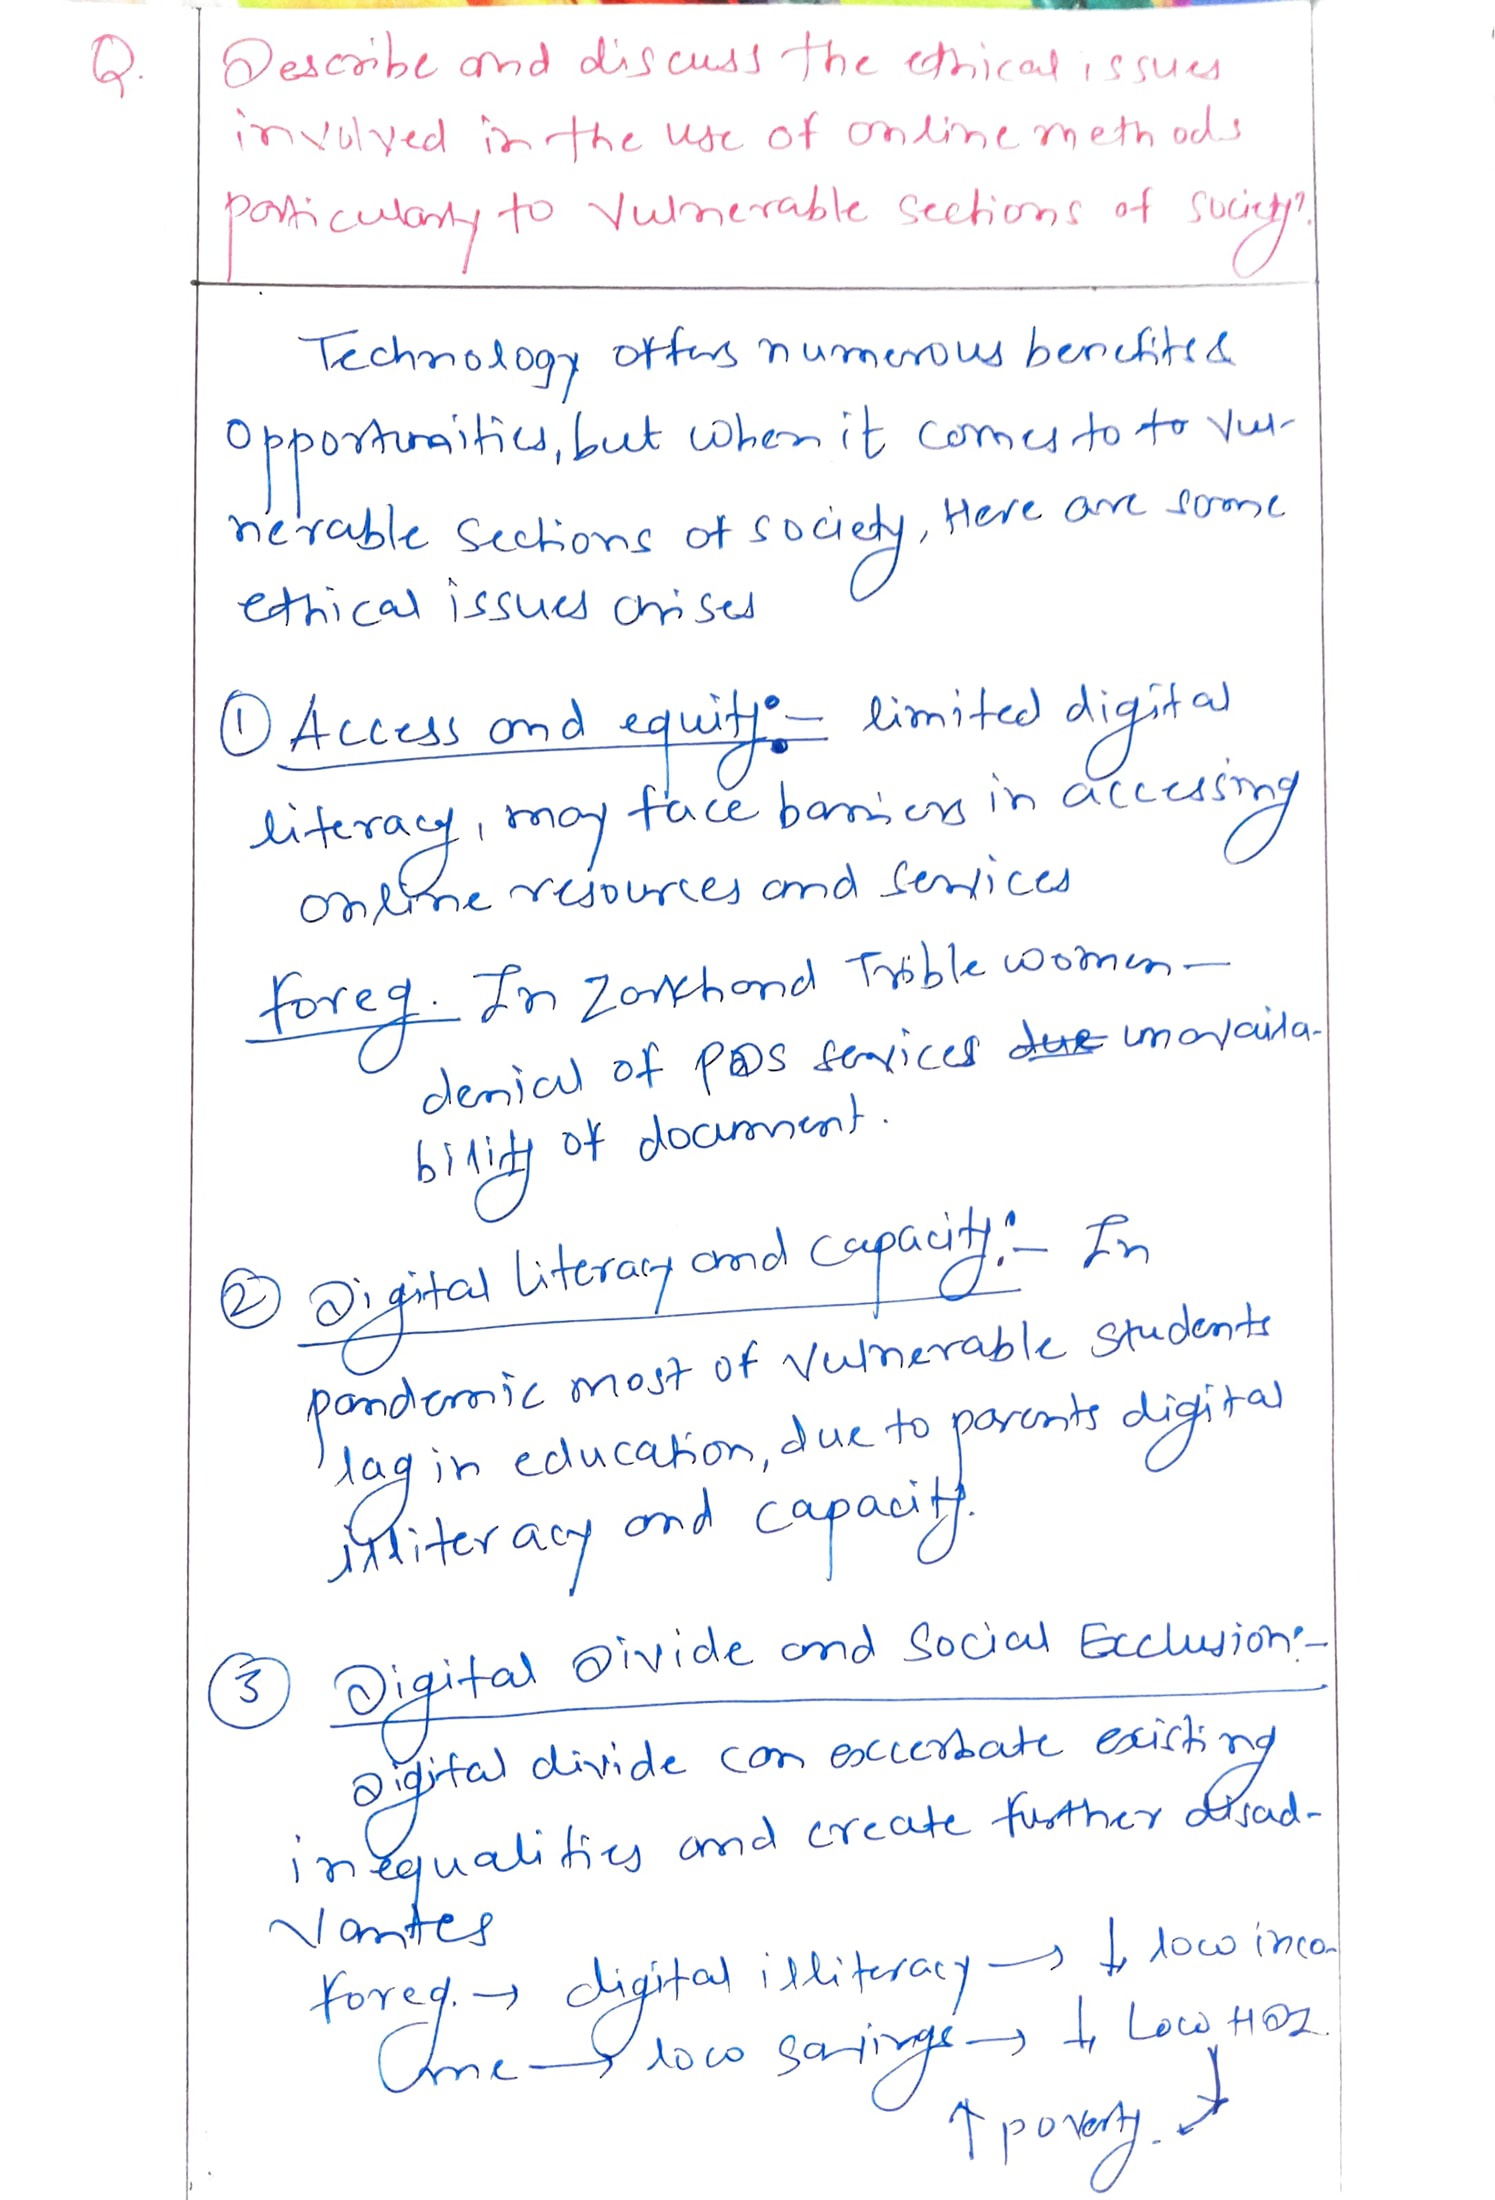 Q. Describe and discuss the ethical issues
involved in the use of online methods
particularly to vulnerable sections of society?
Technology offers numerous benefits &
opportunities, but when it comes to to vul-
nerable sections of society, Here are some
ethical issues arises
① Access and equity:- limited digital
literacy, may face barriers in accessing
online resources and services
foreg. In Zarkhand Trible women -
denial of PDS services due unavaila-
bility of document.
② Digital literacy and capacity:- In
pandemic most of vulnerable students
lag in education, due to parents digital
illiteracy and capacity.
③ Digital Divide and Social Exclusion:-
Digital divide can excerbate existing
inequalities and create further disad-
vantes
foreg. → digital illiteracy → ↓ low inco-
me → low savings → ↓ Low HDI.
↑ poverty.